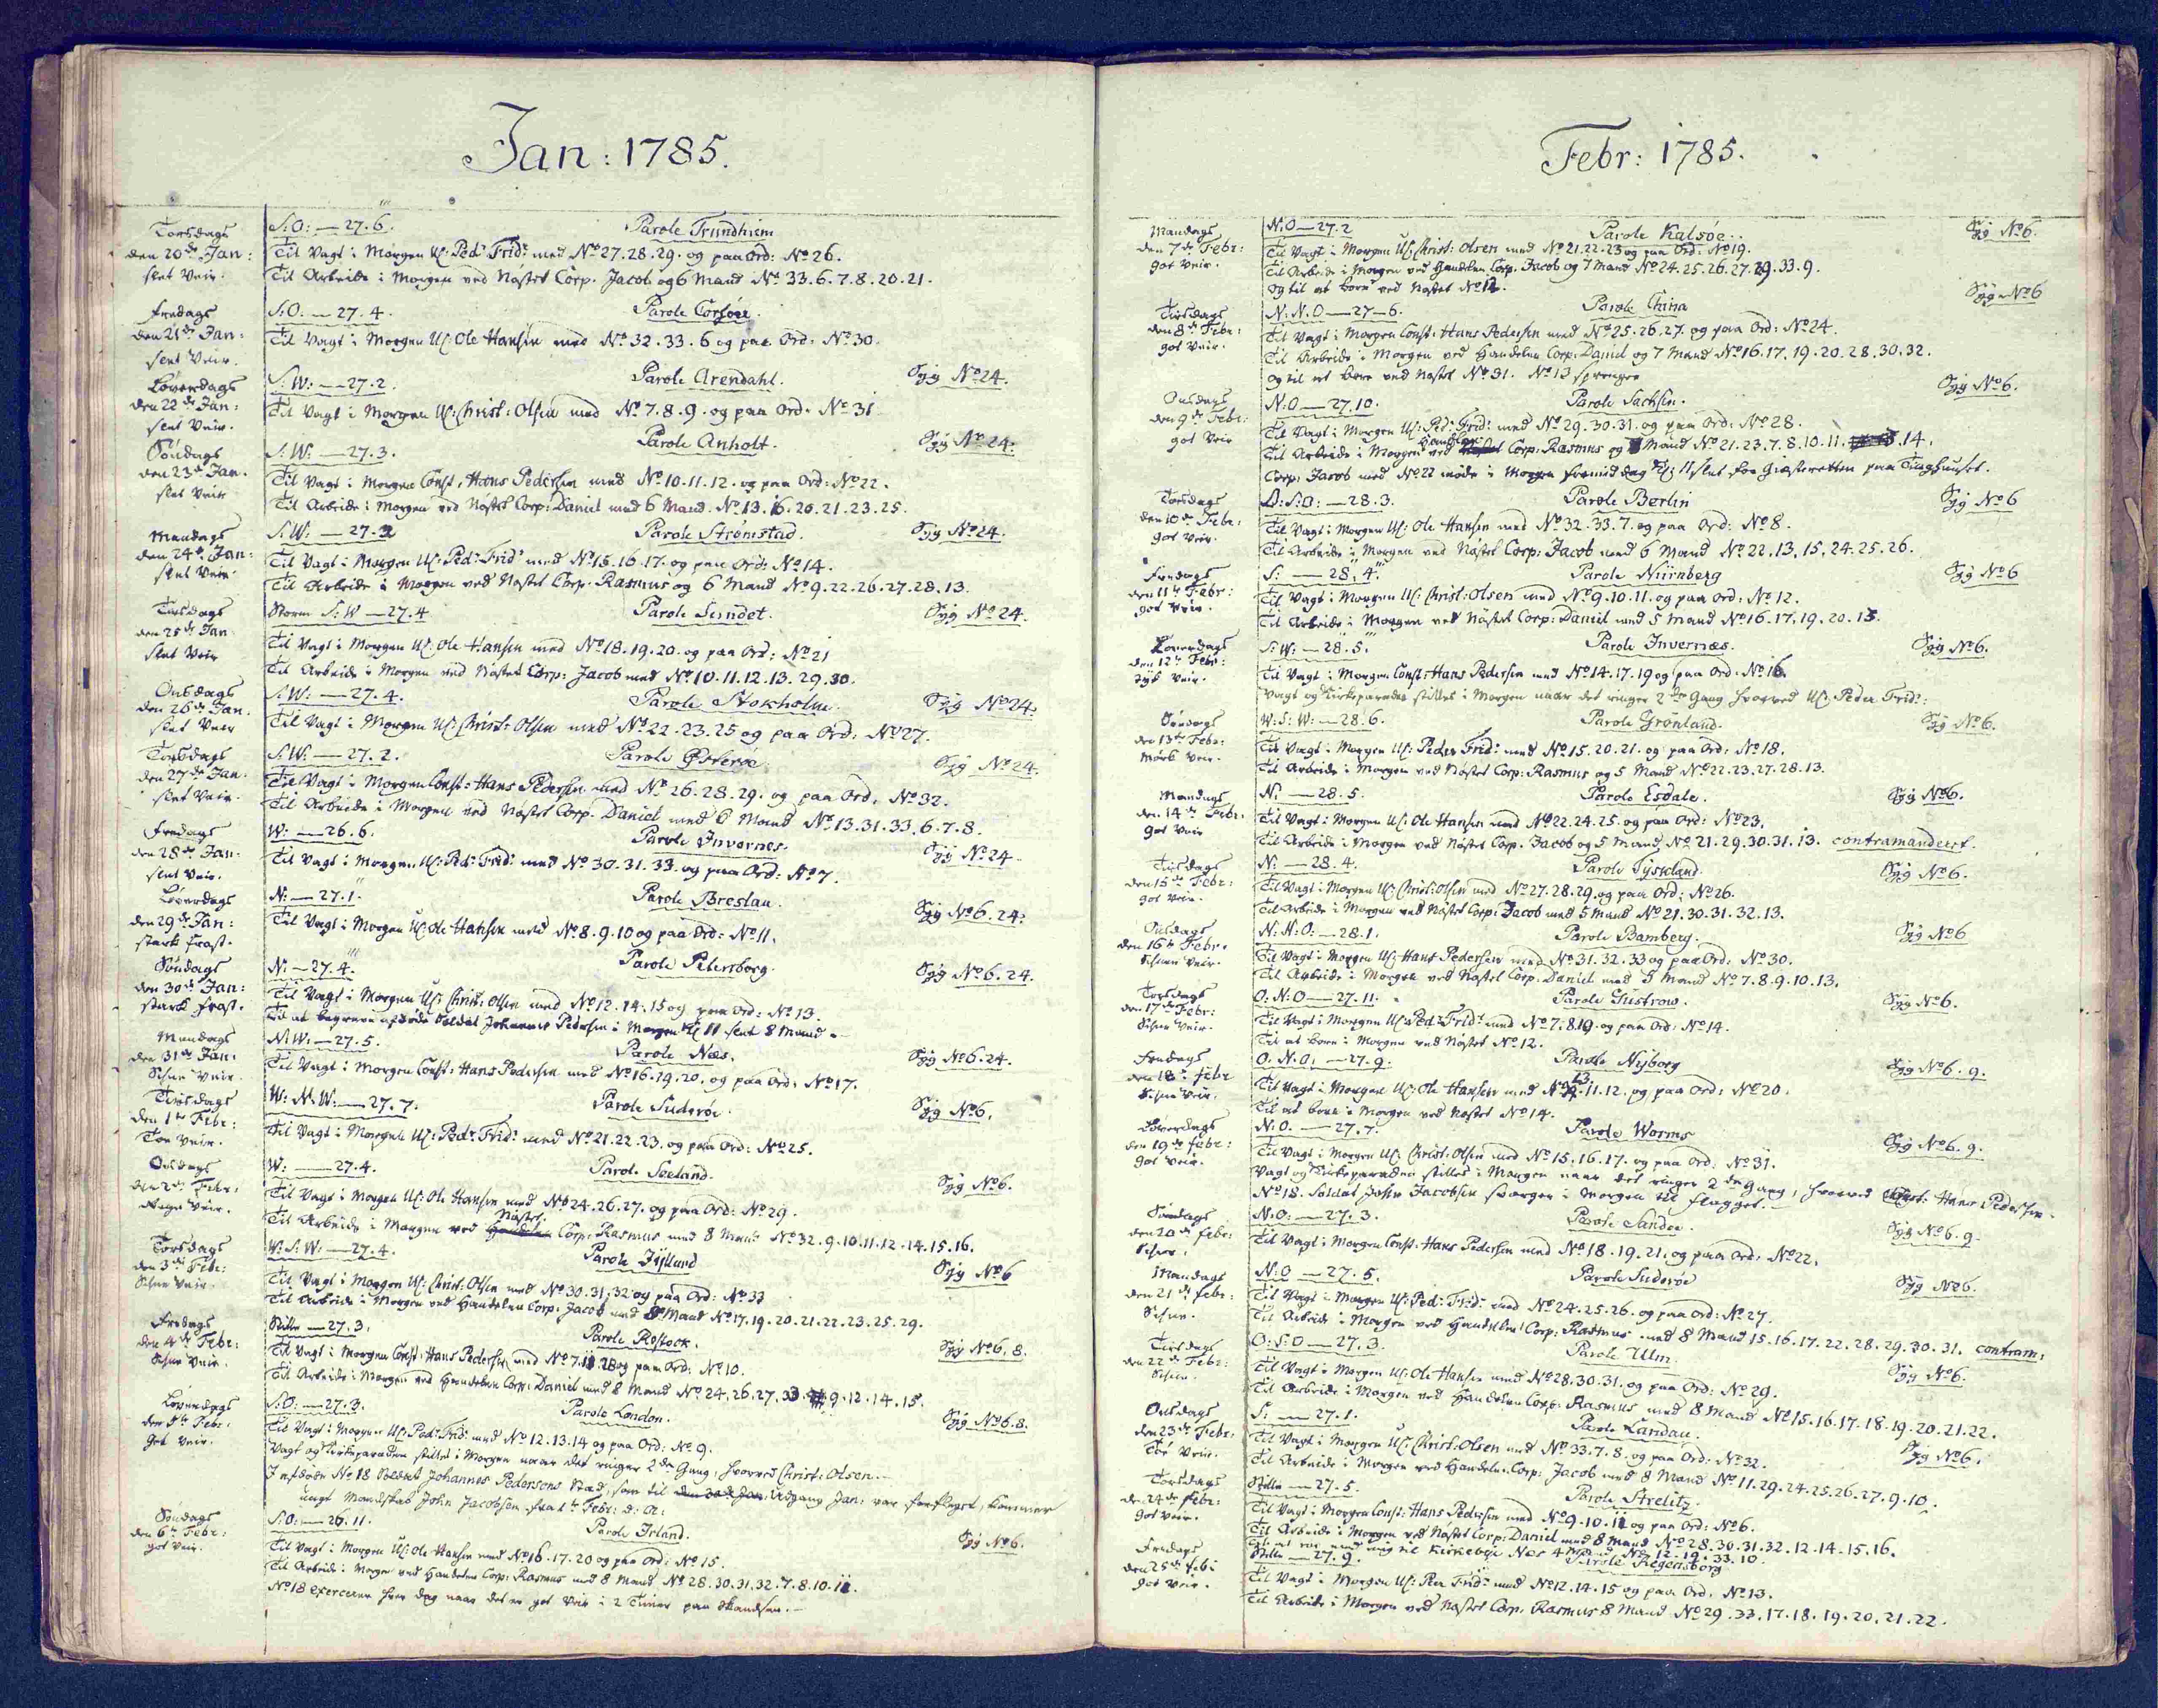 Jan: 1785.
Torsdags den 20de Jan: slet Veir.
S:O: — 27.6. Parole Trundhiem
Til Vagt i Morgen UC: Pedr Fridr med No 27.28.29. og paa Ord: No 26.
Til Arbeide i Morgen ved Nøstet Corp. Jacob og 6 Mand No 33.6.7.8.20.21.
Fredags den 21de Jan: slet Veir.
S:O. — 27.4. Parole Corsöer.
Til Vagt i Morgen UC: Ole Hansen med No 32.33.6 og paa Ord: No 30.
Løverdags den 22de Jan: slet Veir.
S:W: — 27.2. Parole Arendahl. Syg No 24.
Til Vagt i Morgen UC: Christ: Olsen med No 7.8.9. og paa Ord. No 31
Søndags den 23de Jan. slet Veir
S:W: — 27.3. Parole Anholt. Syg No 24.
Til Vagt i Morgen Const. Hans Pedersen med No 10.11.12. og paa Ord: No 22.
Til Arbeide i Morgen ved Nøstet Corp: Daniel med 6 Mand. No 13.16.20.21.23.25.
Mandags den 24de Jan: slet Veir.
S:W: — 27.2 Parole Strømstad. Syg No 24.
Til Vagt i Morgen UC: Pedr Fridr med No 15.16.17. og paa Ord: No 14.
Til Arbeide i Morgen ved Nøstet Corp. Rasmus og 6 Mand No 9.22.26.27.28.13.
Tirsdags den 25de Jan slet Veir
Storm S:W — 27.4 Parole Sundet. Syg No 24.
Til Vagt i Morgen UC: Ole Hansen med No 18.19.20. og paa Ord: No 21
Til Arbeide i Morgen ved Nøstet Corp: Jacob med No 10.11.12.13.29.30.
Onsdags den 26de Jan. slet Veir
S.W: — 27.4. Parole Stokholm. Syg No 24.
Til Vagt i Morgen UC: Christ: Olsen med No 22.23.25 og paa Ord: No 27.
Torsdags den 27de Jan. slet Veir.
S.W: — 27.2. Parole Østerøe. Syg No 24.
Til Vagt i Morgen Const: Hans Pedersen med No 26.28.29. og paa Ord. No 32.
Til Arbeide i Morgen ved Nøstet Corp. Daniel med 6 Mand No 13.31.33.6.7.8.
Fredags den 28de Jan. slet Veir.
W: — 26.6. Parole Invernes. Syg No 24.
Til Vagt i Morgen UC: Pedr Fridr med No 30.31.33. og paa Ord: No 7.
Løverdags den 29de Jan: stark Frost.
N: — 27.1. Parole Breslau. Syg No 6.24.
Til Vagt i Morgen UC: Ole Hansen med No 8.9.10 og paa Ord: No 11.
Søndags den 30de Jan: stark Frost.
N: — 27.4. Parole Petersborg. Syg No 6.24.
Til Vagt i Morgen UC: Christ: Olsen med No 12.14.15 og paa Ord: No 13.
Til at begrave afdøde Soldat Johannes Pedersen i Morgen Kl 11 slet 8 Mand.
Mandags den 31de Jan: Schøn Veir.
N:W: — 27.5. Parole Næs. Syg No 6.24.
Til Vagt i Morgen Const: Hans Pedersen med No 16.19.20. og paa Ord: No 17.
Tirsdags den 1te Febr: Tør Veir.
W:N:W: — 27.7. Parole Suderöe. Syg No 6.
Til Vagt i Morgen UC: Pedr. Fridr med No 21.22.23. og paa Ord: No 25.
Onsdags den 2de Febr: Veir.
W: — 27.4. Parole Seeland. Syg No 6.
Til Vagt i Morgen UC: Ole Hansen med No 24.26.27. og paa Ord: No 29.
Til Arbeide i Morgen ved Nøstet Corp: Rasmus med 8 Mand No 32.9.10.11.12.14.15.16.
Torsdags den 3die Febr: Schøn Veir.
W:S:W: — 27.4. Parole Jylland Syg No 6
Til Vagt i Morgen UC: Christ. Olsen med No 30.31.32 og paa Ord: No 33
Til Arbeide i Morgen ved Handelen Corp: Jacob med 8 Mand No 17.19.20.21.22.23.25.29.
Fredags den 4de Febr: Schøn Veir.
Stille — 27.3. Parole Rostock. Syg No 6.8.
Til Vagt i Morgen Const: Hans Pedersen med No 7.11.28 og paa Ord: No 10.
Til Arbeide i Morgen ved Handelen Corp: Daniel med 8 Mand No 24.26.27.33.9.12.14.15.
Løverdags den 5te Febr. got Veir.
S:O: — 27.3. Parole London. Syg No 6.8.
Til Vagt i Morgen UC: Pedr Fridr med No 12.13.14 og paa Ord: No 9.
Vagt og Kirkeparaden stilles i Morgen naar det ringer 2den Gang, hvorved Christ: Olsen.
I afdøde No 18 Soldat Johannes Pedersens Stæd, som til Udgang Jan: var forpleyet, kommer
ungt Mandskab John Jacobsen fra 1te Febr: d: A:
Søndags den 6te Febr: got Veir.
S:O: — 26.11. Parole Irland. Syg No 6.
Til Vagt i Morgen UC: Ole Hansen med No 16.17.20 og paa Ord: No 15.
Til Arbeide i Morgen ved Handelen Corp: Rasmus med 8 Mand No 28.30.31.32.7.8.10.11.
No 18 exercerer hver dag naar det er got Veir i 2 Timer paa Skandsen.
Febr: 1785.
Mandags den 7de Febr: got Veir.
N:O — 27.2 Parole Kalsøe. Syg No 6.
Til Vagt i Morgen UC: Christ: Olsen med No 21.22.23 og paa Ord. No 19.
Til Arbeide i Morgen ved Handelen Corp. Jacob og 7 Mand No 24.25.26.27.29.33.9.
og til at bore ved Nøstet No 12.
Tirsdags den 8de Febr: got Veir.
N:N.O — 27 — 6. Parole China Syg No 6
Til Vagt i Morgen Const: Hans Pedersen med No 25.26.27. og paa Ord: No 24.
Til Arbeide i Morgen ved Handelen Corp: Daniel og 7 Mand No 16.17.19.20.28.30.32.
og til at bore ved Nøstet No 31. No 13 sprenger
Onsdags den 9de Febr: got Veir
N:O — 27.10. Parole Sachsen. Syg No 6.
Til Vagt i Morgen UC: Pedr Fridr med No 29.30.31. og paa Ord: No 28.
Til Arbeide i Morgen ved Handelen Corp: Rasmus og 8 Mand No 21.23.7.8.10.11.14.
Corp: Jacob med No 22 møde i Morgen Formiddag Kl: 11 slet for Giæsteretten paa Tinghuuset.
Torsdags den 10de Febr: got Veir.
O:S:O: — 28.3. Parole Berlin Syg No 6
Til Vagt i Morgen UC: Ole Hansen med No 32.33.7. og paa Ord: No 8.
Til Arbeide i Morgen ved Nøstet Corp: Jacob med 6 Mand No 22.13.15.24.25.26.
Fredags den 11te Febr: got Veir.
S: — 28.4. Parole Nürnberg Syg No 6
Til Vagt i Morgen UC: Christ: Olsen med No 9.10.11. og paa Ord: No 12.
Til Arbeide i Morgen ved Nøstet Corp: Daniel med 5 Mand No 16.17.19.20.13.
Løverdags den 12te Febr: tyk Veir.
S:W: — 28.5. Parole Invernæs. Syg No 6.
Til Vagt i Morgen Const: Hans Pedersen med No 14.17.19 og paa Ord: No 16
Vagt og Kirkeparaden stilles i Morgen naar det ringer 2den Gang hvorved UC: Peder Fridr:
Søndags den 13te Febr: Mørk Veir.
W:S:W: — 28.6. Parole Grønland. Syg No 6.
Til Vagt i Morgen UC: Peder Fridr med No 15.20.21. og paa Ord: No 18.
Til Arbeide i Morgen ved Nøstet Corp: Rasmus og 5 Mand No 22.23.27.28.13.
Mandags den 14de Febr. got Veir
N: — 28.5. Parole Esdale. Syg No 6.
Til Vagt i Morgen UC: Ole Hansen med No 22.24.25. og paa Ord: No 23.
Til Arbeide i Morgen ved Nøstet Corp. Jacob og 5 Mand No 21.29.30.31.13. contramanderet.
Tirsdags den 15de Febr: got Veir.
N: — 28.4. Parole Tyskland. Syg No 6.
Til Vagt i Morgen UC: Christ: Olsen med No 27.28.29. og paa Ord: No 26.
Til Arbeide i Morgen ved Nøstet Corp: Jacob med 5 Mand No 21.30.31.32.13.
Onsdags den 16de Febr. Schøn Veir.
N:N:O: — 28.1. Parole Bamberg. Syg No 6
Til Vagt i Morgen UC: Hans Pedersen med No 31.32.33 og paa Ord: No 30.
Til Arbeide i Morgen ved Nøstet Corp. Daniel med 5 Mand No 7.8.9.10.13.
Torsdags den 17de Febr: Schøn Veir.
O:N:O — 27.11. Parole Gustrow. Syg No 6.
Til Vagt i Morgen UC: Pedr Fridr med No 7.8.19. og paa Ord: No 14.
Til at bore i Morgen ved Nøstet No 12.
Fredags den 18de Febr Schøn Veir.
O:N:O: — 27.9. Parole Nyborg Syg No 6.9.
Til Vagt i Morgen UC: Ole Hansen med No 13.11.12. og paa Ord: No 20.
Til at bore i Morgen ved Nøstet No 14.
Løverdags den 19de Febr: got Veir.
N:O. — 27.7. Parole Worms Syg No 6.9.
Til Vagt i Morgen UC: Christ: Olsen med No 15.16.17. og paa Ord: No 31.
Vagt og Kirkeparaden stilles i Morgen naar det ringer 2den Gang, hvorved Const: Hans Pedersen.
No 18. Soldat John Jacobsen sværger i Morgen til Flagget.
Søndags den 20de Febr: Schøn.
N:O: — 27.3. Parole Sandøe. Syg No 6.9.
Til Vagt i Morgen Const: Hans Pedersen med No 18.19.21. og paa Ord: No 22.
Mandags den 21de Febr: Schøn.
N:O — 27.5. Parole Suderöe Syg No 6.
Til Vagt i Morgen UC: Pedr Fridr med No 24.25.26. og paa Ord: No 27.
Til Arbeide i Morgen ved Handelen Corp: Rasmus med 8 Mand 15.16.17.22.28.29.30.31. contram:
Tirsdags den 22de Febr: Schøn.
O:S:O — 27.3. Parole Ulm. Syg No 6.
Til Vagt i Morgen UC: Ole Hansen med No 28.30.31. og paa Ord: No 29.
Til Arbeide i Morgen ved Handelen Corp: Rasmus med 8 Mand No 15.16.17.18.19.20.21.22.
Onsdags den 23de Febr: Tør Veir.
S: — 27.1. Parole Landau. Syg No 6.
Til Vagt i Morgen UC: Christ: Olsen med No 33.7.8. og paa Ord: No 32.
Til Arbeide i Morgen ved Handelen Corp: Jacob med 8 Mand No 11.29.24.25.26.27.9.10.
Torsdags den 24de Febr: got Veir.
Stille — 27.5. Parole Strelitz.
Til Vagt i Morgen Const: Hans Pedersen med No 9.10.11 og paa Ord: No 6.
Til Arbeide i Morgen ved Nøstet Corp: Daniel med 8 Mand No 28.30.31.32.12.14.15.16.
Til at roe med mig til Kirkebøe Næs 4 Mand No 12.19.33.10.
Fredags den 25de Feb: got Veir.
Stille — 27.9. Parole Regensborg
Til Vagt i Morgen UC: Peer Fridr: med No 12.14.15 og paa Ord. No 13.
Til Arbeide i Morgen ved Nøstet Corp. Rasmus 8 Mand No 29.33.17.18.19.20.21.22.